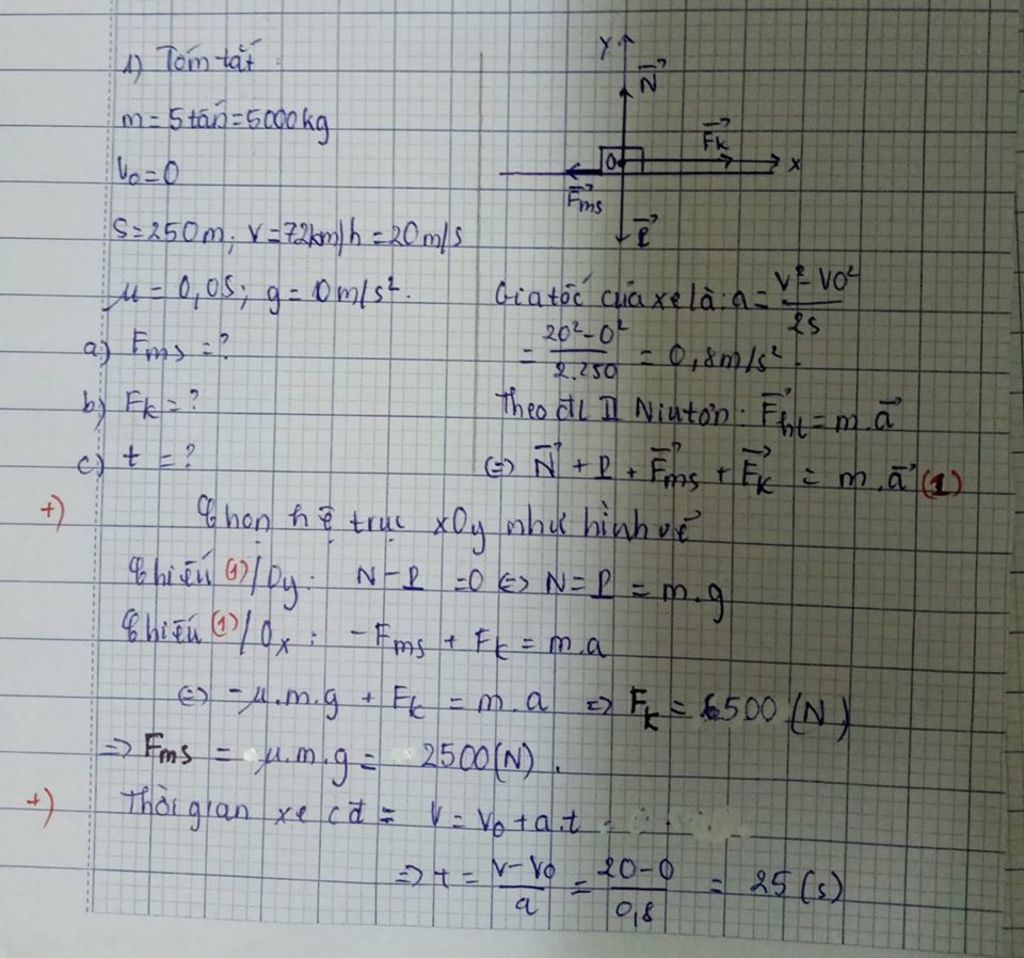 1) Tóm tắt
m = 5 tấn = 5000kg
V₀ = 0
S = 250m; V = 72km/h = 20m/s
μ = 0,05; g = 0m/s².
a) Fms = ?
b) Fk = ?
c) t = ?
y
N⃗
Fk⃗
O
x
Fms⃗
P⃗
Gia tốc của xe là: a = (V² - V0²)/2s
= (20² - 0²)/2.250 = 0,8m/s².
Theo đl II Niutơn: Fhl⃗ = m.a⃗
⇔ N⃗ + P + Fms⃗ + Fk⃗ = m.a⃗ (1)
+) Chọn hệ trục xOy như hình vẽ
Chiếu (1)/Oy: N - P = 0 ⇔ N = P = m.g
Chiếu (1)/Ox: -Fms + Fk = m.a
⇔ -μ.m.g + Fk = m.a ⇒ Fk = 6500 (N)
⇒ Fms = μ.m.g = 2500(N).
+) Thời gian xe cđ = V = V₀ + a.t
⇒ t = (V - V₀)/a = (20 - 0)/0,8 = 25 (s)